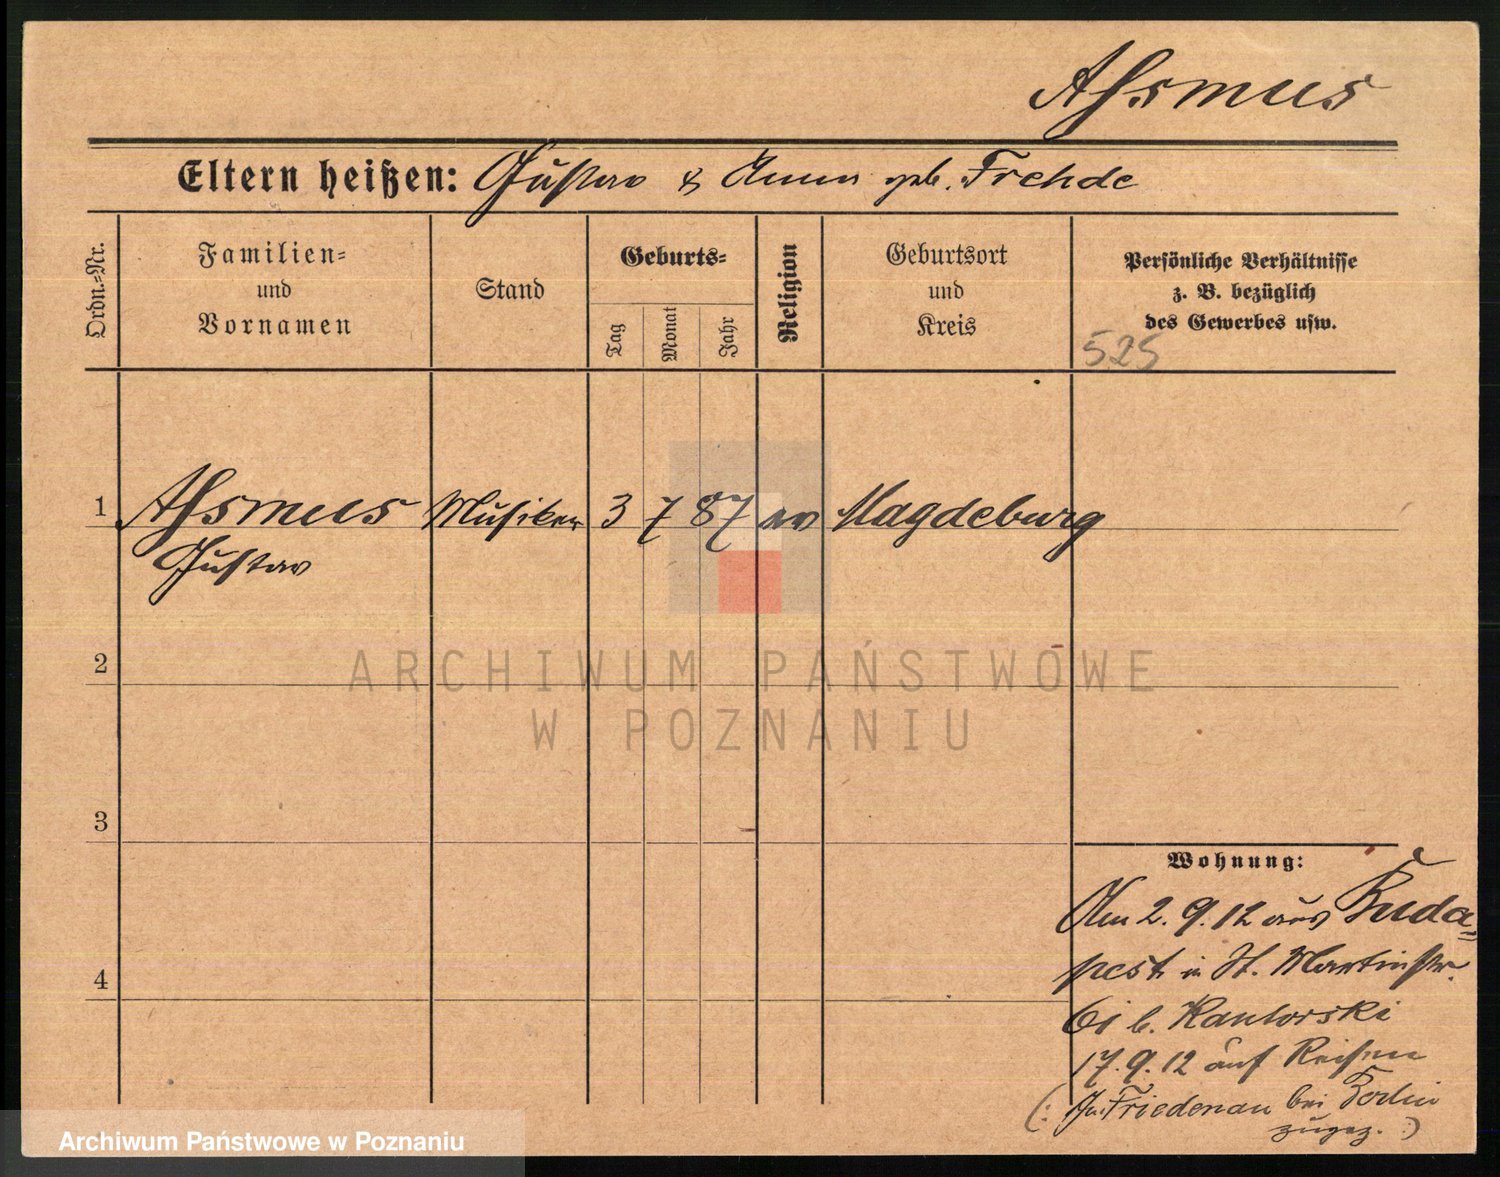 Assmus
Eltern heißen: Gustav & Anna geb. Frehde
Ordn.-Nr.
Familien-
und
Vornamen
Stand
Geburts-
Tag
Monat
Jahr
Religion
Geburtsort
und
Kreis
Persönliche Verhältnisse
z. B. bezüglich
des Gewerbes usw.
525
1 Assmus Musiker 3 7 87 ev Magdeburg
Gustav
2
ARCHIWUM PAŃSTWOWE
W POZNANIU
3
Wohnung:
Am 2.9.12 aus Buda=
pest in St. Martinstr.
61 b. Kantorski
17.9.12 auf Reisen
(: In Friedenau bei Berlin
zugez. :)
4
Archiwum Państwowe w Poznaniu